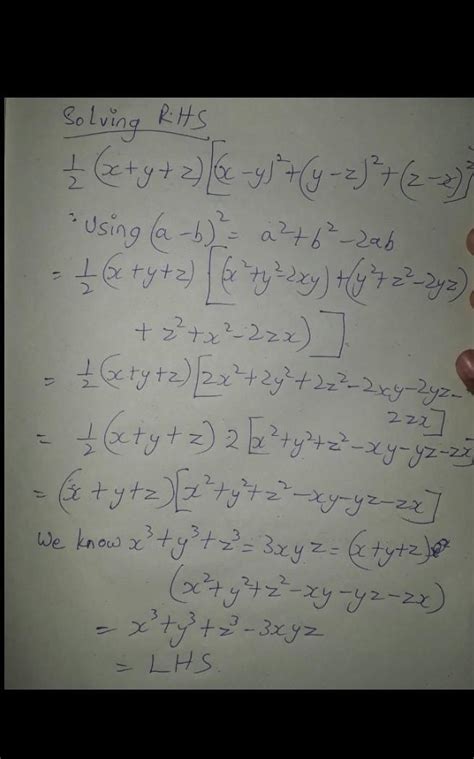 Solving RHS
1/2 (x+y+z) [(x-y)²+(y-z)²+(z-x)²]
Using (a-b)² = a²+b²-2ab
= 1/2 (x+y+z) [(x²+y²-2xy)+(y²+z²-2yz)
+ z²+x²-2zx)].
= 1/2 (x+y+z) [2x²+2y²+2z²-2xy-2yz-
2zx]
= 1/2 (x+y+z) 2 [x²+y²+z²-xy-yz-zx]
= (x+y+z) [x²+y²+z²-xy-yz-zx]
We know x³+y³+z³=3xyz=(x+y+z)
(x²+y²+z²-xy-yz-zx)
= x³+y³+z³-3xyz
= LHS.